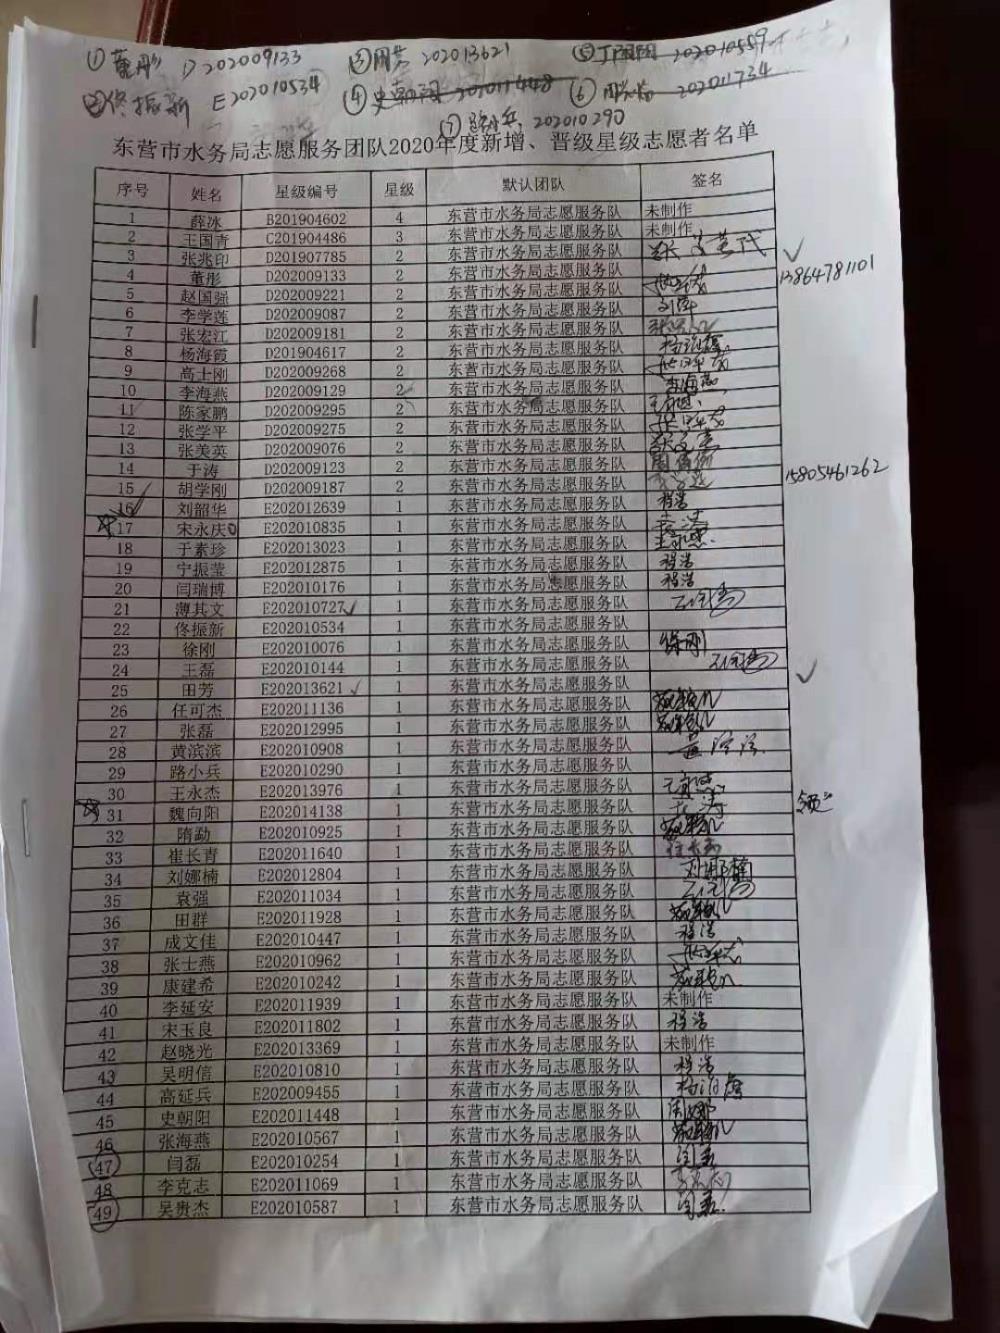 ① 董彤 D202009133 ③ 田芳 202013621 ⑤ 202010559
② 佟振新 E202010534 ④ 史朝阳 202011448 ⑥ 202011734
⑦ 路小兵 202010290
东营市水务局志愿服务团队2020年度新增、晋级星级志愿者名单
序号 姓名 星级编号 星级 默认团队 签名
1 薛冰 B201904602 4 东营市水务局志愿服务队 未制作
2 王国青 C201904486 3 东营市水务局志愿服务队 未制作
3 张兆印 D201907785 2 东营市水务局志愿服务队
4 董彤 D202009133 2 东营市水务局志愿服务队 13864781101
5 赵国强 D202009221 2 东营市水务局志愿服务队
6 李学莲 D202009087 2 东营市水务局志愿服务队
7 张宏江 D202009181 2 东营市水务局志愿服务队
8 杨海霞 D201904617 2 东营市水务局志愿服务队
9 高士刚 D202009268 2 东营市水务局志愿服务队
10 李海燕 D202009129 2 东营市水务局志愿服务队 李海燕
11 陈家鹏 D202009295 2 东营市水务局志愿服务队
12 张学平 D202009275 2 东营市水务局志愿服务队
13 张美英 D202009076 2 东营市水务局志愿服务队
14 于涛 D202009123 2 东营市水务局志愿服务队 15805461262
15 胡学刚 D202009187 2 东营市水务局志愿服务队
16 刘韶华 E202012639 1 东营市水务局志愿服务队 程浩
17 宋永庆 E202010835 1 东营市水务局志愿服务队
18 于素珍 E202013023 1 东营市水务局志愿服务队
19 宁振莹 E202012875 1 东营市水务局志愿服务队 程浩
20 闫瑞博 E202010176 1 东营市水务局志愿服务队 程浩
21 薄其文 E202010727 1 东营市水务局志愿服务队
22 佟振新 E202010534 1 东营市水务局志愿服务队
23 徐刚 E202010076 1 东营市水务局志愿服务队 徐刚
24 王磊 E202010144 1 东营市水务局志愿服务队
25 田芳 E202013621 1 东营市水务局志愿服务队
26 任可杰 E202011136 1 东营市水务局志愿服务队
27 张磊 E202012995 1 东营市水务局志愿服务队
28 黄滨滨 E202010908 1 东营市水务局志愿服务队
29 路小兵 E202010290 1 东营市水务局志愿服务队
30 王永杰 E202013976 1 东营市水务局志愿服务队
31 魏向阳 E202014138 1 东营市水务局志愿服务队
32 隋勐 E202010925 1 东营市水务局志愿服务队
33 崔长青 E202011640 1 东营市水务局志愿服务队
34 刘娜楠 E202012804 1 东营市水务局志愿服务队 刘娜楠
35 袁强 E202011034 1 东营市水务局志愿服务队
36 田群 E202011928 1 东营市水务局志愿服务队
37 成文佳 E202010447 1 东营市水务局志愿服务队 程浩
38 张士燕 E202010962 1 东营市水务局志愿服务队
39 康建希 E202010242 1 东营市水务局志愿服务队
40 李延安 E202011939 1 东营市水务局志愿服务队 未制作
41 宋玉良 E202011802 1 东营市水务局志愿服务队 程浩
42 赵晓光 E202013369 1 东营市水务局志愿服务队 未制作
43 吴明信 E202010810 1 东营市水务局志愿服务队 程浩
44 高延兵 E202009455 1 东营市水务局志愿服务队
45 史朝阳 E202011448 1 东营市水务局志愿服务队
46 张海燕 E202010567 1 东营市水务局志愿服务队
47 闫磊 E202010254 1 东营市水务局志愿服务队
48 李克志 E202011069 1 东营市水务局志愿服务队
49 吴贵杰 E202010587 1 东营市水务局志愿服务队